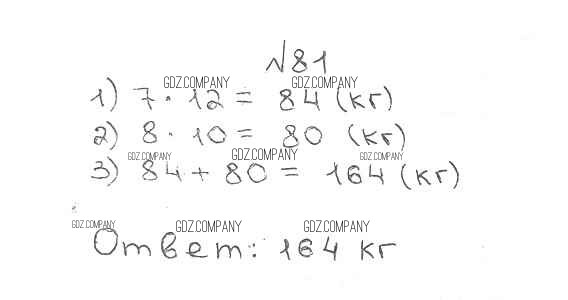 №81
GDZ.COMPANY GDZ.COMPANY
1) 7 · 12 = 84 (кг)
2) 8 · 10 = 80 (кг)
GDZ.COMPANY GDZ.COMPANY GDZ.COMPANY
3) 84 + 80 = 164 (кг)
GDZ.COMPANY GDZ.COMPANY GDZ.COMPANY
Ответ: 164 кг